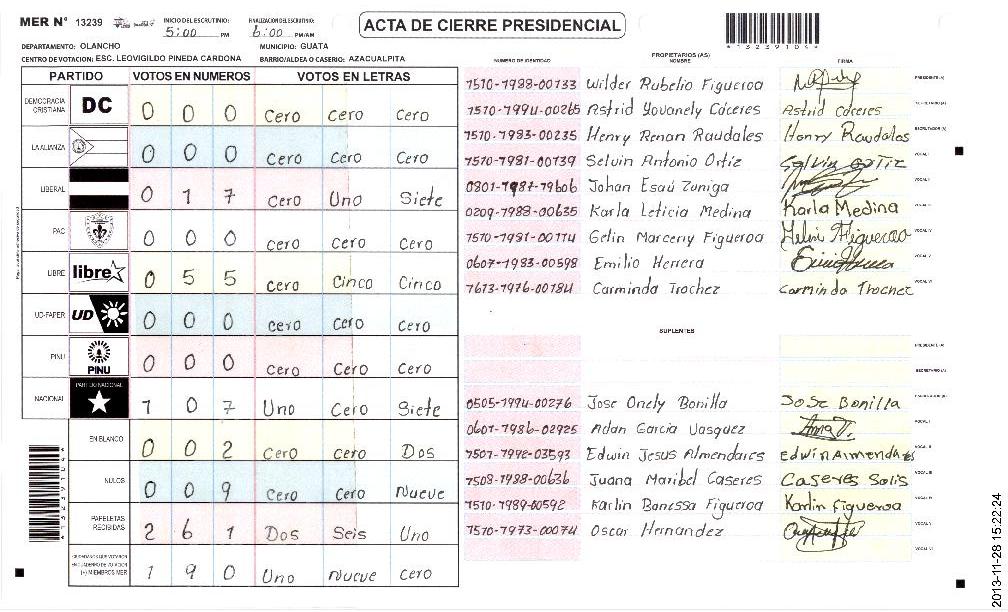 MER Nº 13239 INICIO DEL ESCRUTINIO: 5:00 PM FINALIZACIÓN DEL ESCRUTINIO: 6:00 PM/AM
ACTA DE CIERRE PRESIDENCIAL
*13239104*
DEPARTAMENTO: OLANCHO MUNICIPIO: GUATA
CENTRO DE VOTACION: ESC. LEOVIGILDO PINEDA CARDONA BARRIO/ALDEA O CASERIO: AZACUALPITA
PARTIDO VOTOS EN NUMEROS VOTOS EN LETRAS
DEMOCRACIA CRISTIANA DC 0 0 0 Cero Cero Cero
LA ALIANZA 0 0 0 Cero Cero Cero
LIBERAL 0 1 7 Cero Uno Siete
PAC 0 0 0 Cero Cero Cero
LIBRE libre 0 5 5 Cero Cinco Cinco
UD-FAPER UD 0 0 0 Cero Cero Cero
PINU PINU 0 0 0 Cero Cero Cero
NACIONAL PARTIDO NACIONAL 1 0 7 Uno Cero Siete
EN BLANCO 0 0 2 Cero Cero Dos
NULOS 0 0 9 Cero Cero Nueve
PAPELETAS RECIBIDAS 2 6 1 Dos Seis Uno
CIUDADANOS QUE VOTARON EN CUADERNO DE VOTACION (+) MIEMBROS MER 1 9 0 Uno Nueve Cero
PROPIETARIOS (AS)
NUMERO DE IDENTIDAD NOMBRE FIRMA
1510-1988-00133 Wilder Rubelio Figueroa PRESIDENTE (A)
1510-1994-00265 Astrid Yovanely Cáceres Astrid Cáceres SECRETARIO (A)
1510-1983-00235 Henry Renan Raudales Henry Raudales ESCRUTADOR (A)
1510-1981-00139 Selvin Antonio Ortiz Selvin Ortiz VOCAL I
0801-1987-19606 Johan Esaú Zuniga VOCAL II
0209-1988-00635 Karla Leticia Medina Karla Medina VOCAL III
1510-1981-00114 Gelin Marceny Figueroa Figueroa VOCAL IV
0607-1983-00598 Emilio Herrera VOCAL V
1613-1976-00184 Carminda Trochez Carminda Trochez VOCAL VI
SUPLENTES
PRESIDENTE (A)
SECRETARIO (A)
0505-1994-00276 Jose Onely Bonilla Jose Bonilla ESCRUTADOR (A)
0601-1986-02925 Adan Garcia Vasquez VOCAL I
1501-1992-03593 Edwin Jesus Almendares Edwin Almendares VOCAL II
1508-1988-00636 Juana Maribel Caseres Caseres Solis VOCAL III
1510-1989-00592 Karlin Banessa Figueroa Karlin Figueroa VOCAL IV
1510-1973-00074 Oscar Hernandez VOCAL V
VOCAL VI
*13239104*
2013-11-28 15:22:24